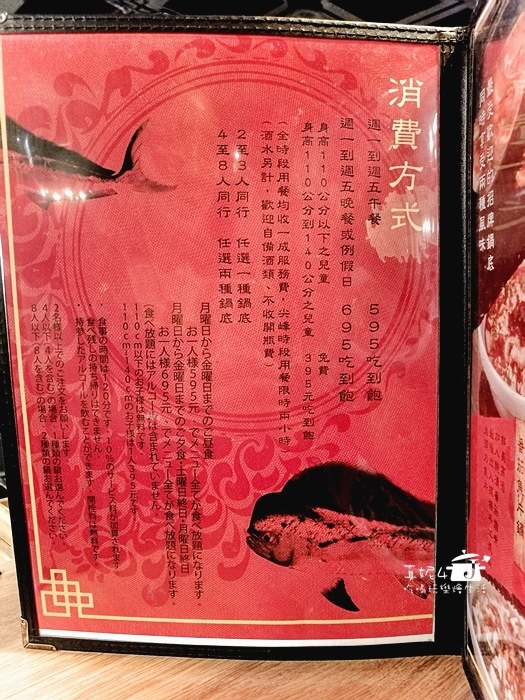 消費方式
週一到週五午餐　595吃到飽
週一到週五晚餐或例假日　695吃到飽
身高110公分以下之兒童　免費
身高110公分到140公分之兒童　395元吃到飽
(全時段用餐均收一成服務費，尖峰時段用餐限時兩小時
(酒水另計，歡迎自備酒類、不收開瓶費)
2至3人同行　任選一種鍋底
4至8人同行　任選兩種鍋底
月曜日から金曜日までのご昼食
お一人様595元でメニュー全てが食べ放題になります。
月曜日から金曜日までのご夕食・土曜日終日・日曜日終日
お一人様695元でメニュー全てが食べ放題になります。
(食べ放題にはアルコールは含まれていません。)
110cm以下のお子様は無料です。
110cm~140cmのお子様は1人395元です。
・食事の時間は120分です。10%のサービス料が加算されます。
・食べ残しの持ち帰りはできません。
・持参したアルコールを飲むことができます　開栓料は無料です。
2名様以上でのご注文をお願いします
4人以下(4人を含む)の場合　1種類の鍋お選んでください。
8人以下(8人を含む)の場合　2種類の鍋お選んでください。
最受歡迎的招牌鍋底
同時享受兩種風味
真妮4
吃喝玩樂繪生活